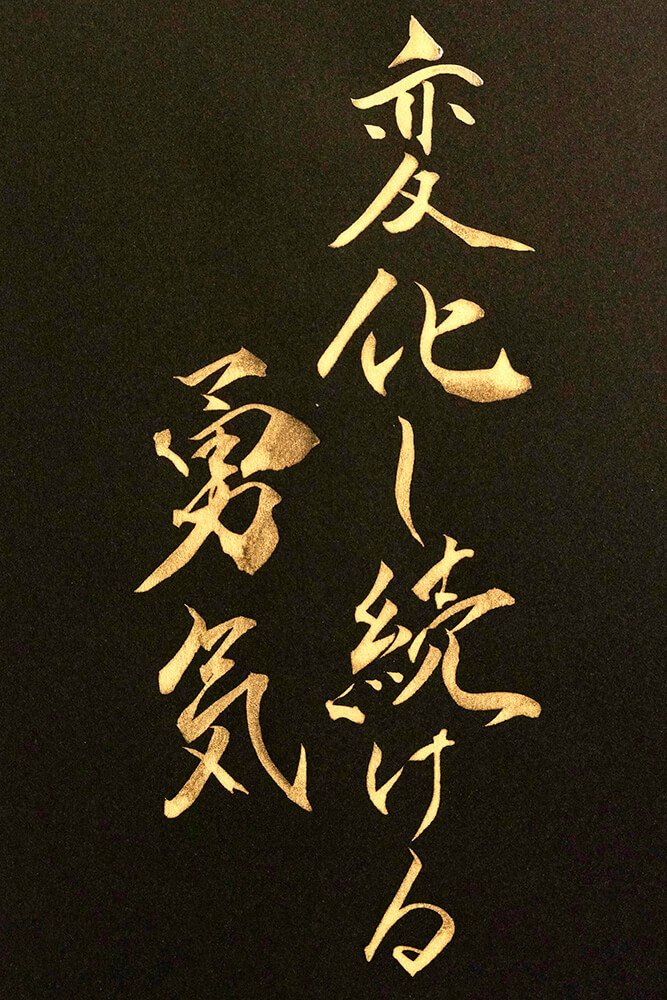 変化し続ける
勇気